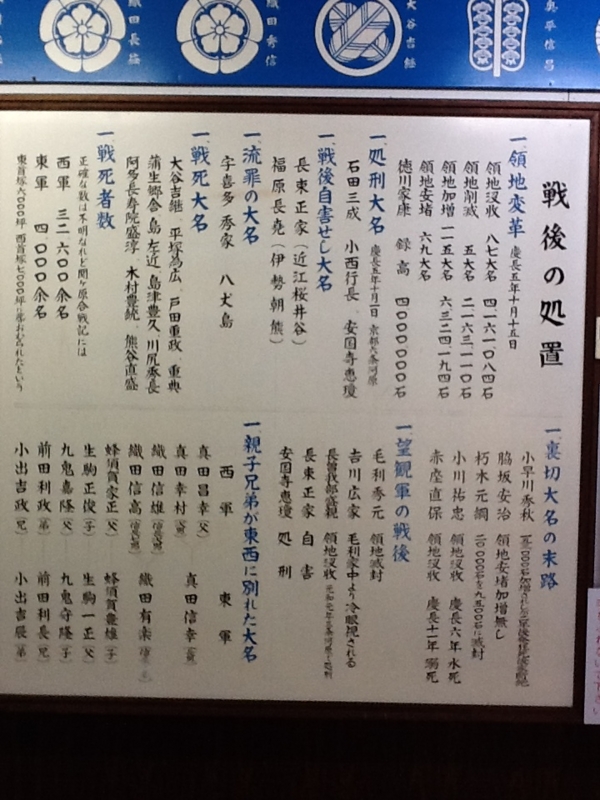 織田長益
織田秀信
大谷吉継
奥平信昌
戦後の処置
一領地変革 慶長五年十月十五日
領地没収 八七大名 四一六一〇八四石
領地削減 五大名 二一六三一一〇石
領地加増 一一五大名 六三二四一九四石
領地安堵 六九大名
徳川家康 録高 四〇〇〇〇〇〇石
一処刑大名 慶長五年十月一日 京都六条河原
石田三成 小西行長 安国寺恵瓊
一戦後自害せし大名
長束正家(近江桜井谷)
福原長堯(伊勢朝熊)
一流罪の大名
宇喜多秀家 八丈島
一戦死大名
大谷吉継 平塚為広 戸田重政 重典
蒲生郷舎 島左近 島津豊久 川尻秀長
阿多長寿院盛淳 木村豊統 熊谷直盛
一戦死者数
正確な数は不明なれど関ヶ原合戦記には
西軍 三二六〇〇余名
東軍 四〇〇〇余名
東首塚六〇〇〇坪 西首塚七〇〇〇坪に葬むられたという
一裏切大名の末路
小早川秀秋
脇坂安治 領地安堵加増無し
朽木元綱 二〇〇〇〇石を九五〇〇石に減封
小川祐忠 領地没収 慶長六年水死
赤座直保 領地没収 慶長十一年溺死
一望観軍の戦後
毛利秀元 領地減封
吉川広家 毛利家中より冷眼視される
長曽我部盛親 領地没収 元和元年六条河原で処刑
長束正家 自害
安国寺恵瓊 処刑
一親子兄弟が東西に別れた大名
西軍 東軍
真田昌幸(父)
真田幸村 真田信幸
織田信雄
織田信高 織田有楽
蜂須賀家正(父) 蜂須賀豊雄(子)
生駒正俊(子) 生駒一正(父)
九鬼嘉隆(父) 九鬼守隆(子)
前田利政(弟) 前田利長(兄)
小出吉政(兄) 小出吉辰(弟)